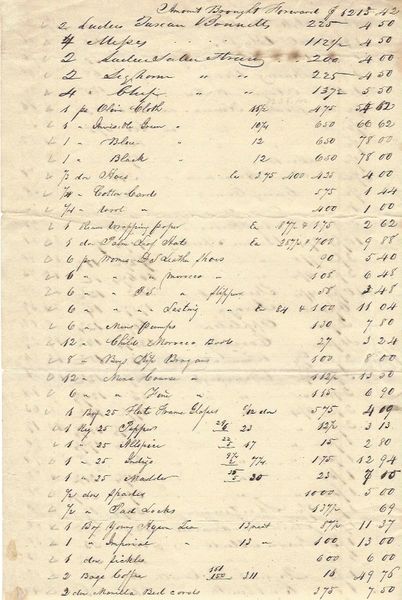 Amount Brought Forward $ 1213.42
2 Ladies Tuscan Bonnetts 225 4 50
4 Misses 112½ 4 50
2 Ladies 200 4 00
2 " Leghorn " " 225 4 50
4 " Cheap " " 137½ 5 50
1 ps Olive Cloth 11½ 475 54 62
1 " Invisible Green " 10¼ 650 66 62
1 " Blue " 12 650 78 00
1 " Black " 12 650 78 00
doz Hoes Ea 375 400 425 4 00
" Cotton Cards 575 1 44
" Wool " 400 1 00
1 Ream Wrapping paper Ea 87½ & 175 2 62
1 doz Palm Leaf Hats Ea 287½ & 700 9 88
6 pr Womens Leather Shoes 90 5 40
6 " " Morocco " 108 6 48
6 " " " Slippers 58 3 48
6 " " Lasting " Ea 84 & 100 11 04
6 " Mens Pumps 130 7 80
12 " Childs Morocco Boots 27 3 24
8 " Boys Brogans 100 8 00
12 " Mens Coarse " 112½ 13 50
6 " " Fine " 115 6 90
1 Box 25 Flint Stone doz 575 4 09
1 Keg 25 Pepper 23 12½ 3 13
1 " 25 Allspice 17 15 2 80
1 " 25 Indigo 7¼ 175 12 94
1 " 25 Madder 30 23 7 15
½ doz Spades 1000 5 00
" Pad Locks 137½ 69
1 Box Young Hyson Tea 13 87½ 11 37
1 " Imperial " 13 " 100 13 00
1 doz Sickles 600 6 00
2 Bags Coffee 311 16 49 76
2 doz Manilla Bed cords 375 7 50